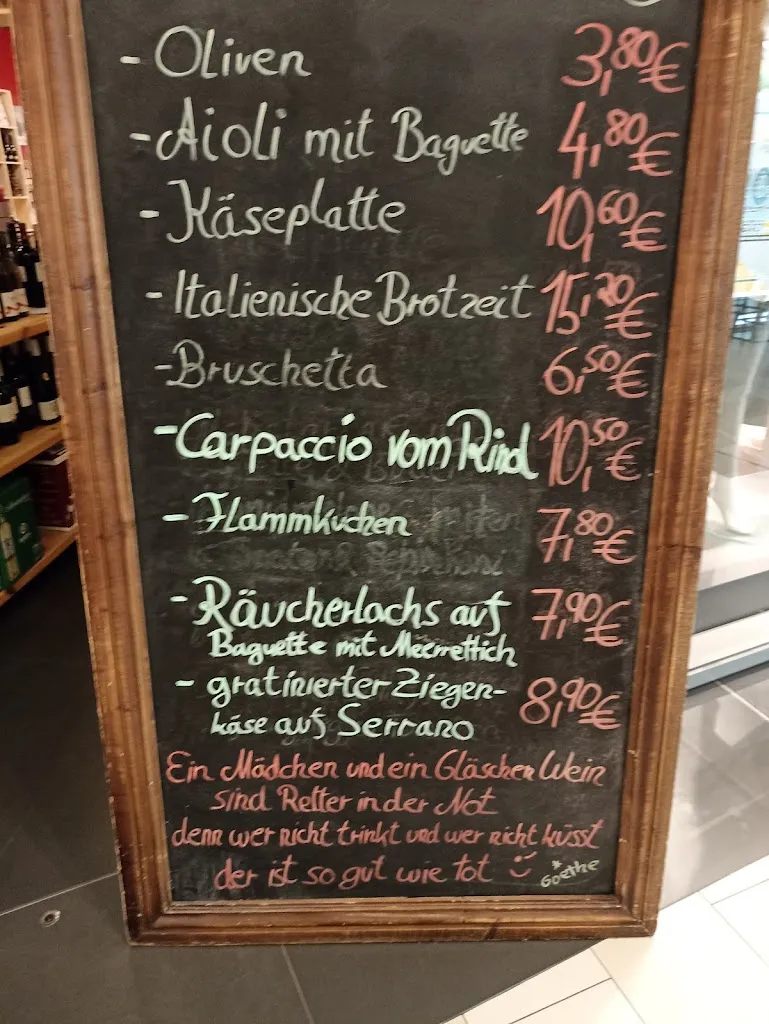 - Oliven 3,80€
- Aioli mit Baguette 4,80€
- Käseplatte 10,60€
- Italienische Brotzeit 15,20€
- Bruschetta 6,50€
- Carpaccio vom Rind 10,50€
- Flammkuchen 7,80€
- Räucherlachs auf 7,90€
Baguette mit Meerrettich
- gratinierter Ziegen- 8,90€
käse auf Serrano
Ein Mädchen und ein Gläschen Wein
sind Retter in der Not
denn wer nicht trinkt und wer nicht küsst
der ist so gut wie tot
* Goethe